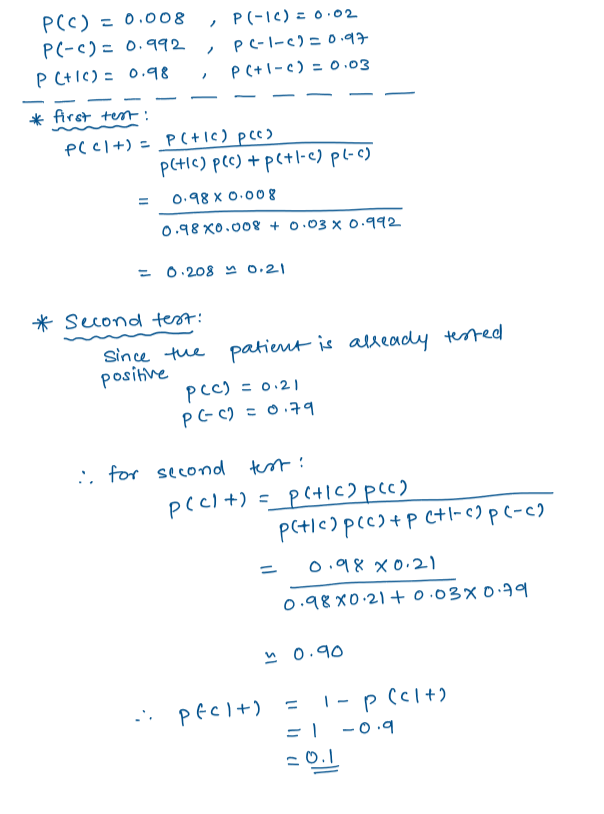 P(C) = 0.008 , P(-|C) = 0.02
P(-C) = 0.992 , P(-|-C) = 0.97
P(+|C) = 0.98 , P(+|-C) = 0.03
* first test :
P(C|+) = P(+|C) P(C)
P(+|C) P(C) + P(+|-C) P(-C)
= 0.98 x 0.008
0.98 x 0.008 + 0.03 x 0.992
= 0.208 ≃ 0.21
* Second test:
Since the patient is already tested
positive
P(C) = 0.21
P(-C) = 0.79
∴ for second test :
P(C|+) = P(+|C) P(C)
P(+|C) P(C) + P(+|-C) P(-C)
= 0.98 x 0.21
0.98 x 0.21 + 0.03 x 0.79
≃ 0.90
∴ P(-C|+) = 1 - P(C|+)
= 1 - 0.9
= 0.1